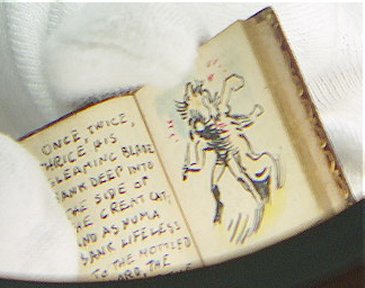 ONCE TWICE,
THRICE HIS
GLEAMING BLADE
SANK DEEP INTO
THE SIDE OF
THE GREAT CAT,
AND AS NUMA
SANK LIFELESS
TO THE MOTTLED
THE